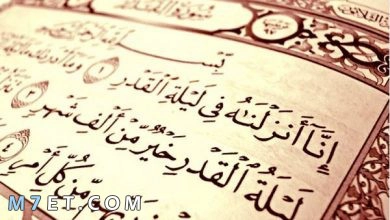 سُورَةُ القَدْرِ
بِسْمِ ٱللَّهِ ٱلرَّحْمَٰنِ
إِنَّآ أَنزَلْنَٰهُ فِى لَيْلَةِ ٱلْقَدْرِ ١ وَمَآ أَدْر
لَيْلَةُ ٱلْقَدْرِ خَيْرٌ مِّنْ أَلْفِ شَهْرٍ ٣
مِّن كُلِّ أَمْرٍ ٤
M7ET.COM